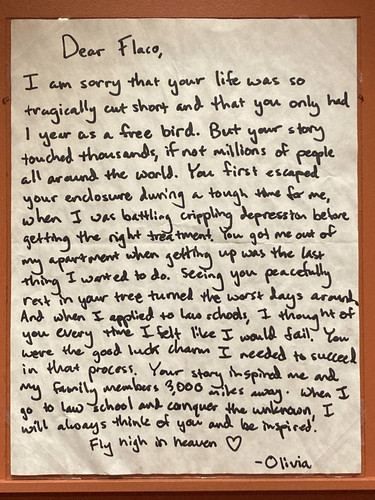 Dear Flaco,
I am sorry that your life was so
tragically cut short and that you only had
1 year as a free bird. But your story
touched thousands, if not millions of people
all around the world. You first escaped
your enclosure during a tough time for me,
when I was battling crippling depression before
getting the right treatment. You got me out of
my apartment when getting up was the last
thing I wanted to do. Seeing you peacefully
rest in your tree turned the worst days around.
And when I applied to law schools, I thought of
you every time I felt like I would fail. You
were the good luck charm I needed to succeed
in that process. Your story inspired me and
my family members 3,000 miles away. When I
go to law school and conquer the unknown, I
will always think of you and be inspired.
Fly high in heaven ♡
-Olivia